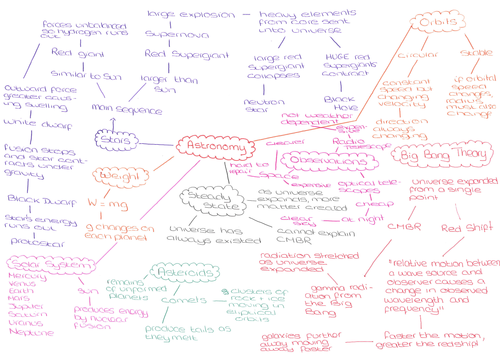 forces unbalanced
as hydrogen runs
out
Red giant
similar to Sun
main sequence
Stars
outward force
greater caus-
ing swelling
white dwarf
fusion stops
and star cont-
racts under
gravity
Black Dwarf
stars energy
runs out
protostar
large explosion
Supernova
Red Supergiant
larger than
Sun
heavy elements
from core sent
into universe
large red
supergiant
collapses
neutron
star
HUGE red
supergiants
contract
Black
Hole
Orbits
circular
constant
speed but
changing
velocity
direction
always
changing
Stable
if orbital
speed
changes,
radius
must also
change
Astronomy
Weight
W = mg
g changes on
each planet
Steady
State
universe has
always existed
as universe
expands, more
matter created
cannot explain
CMBR
Observations
not weather
dependent
clearer
hard to
repair
space
expensive
Radio
telescope
optical tele-
scopes
cheap
at night
clear
sky
Big Bang Theory
universe expanded
from a single
point
CMBR
Red shift
radiation stretched
as universe
expanded
gamma radi-
ation from
the Big
Bang
"relative motion between
a wave source and
observer causes a
change in observed
wavelength and
frequency"
faster the motion,
greater the redshift
galaxies further
away moving
away faster
Solar System
Mercury
Venus
Earth
Mars
Jupiter
Saturn
Uranus
Neptune
Sun
produces energy
by nuclear
fusion
Asteroids
remains
of unformed
planets
comets
clusters of
rock + ice
moving in
eliptical
orbits
produce tails as
they melt